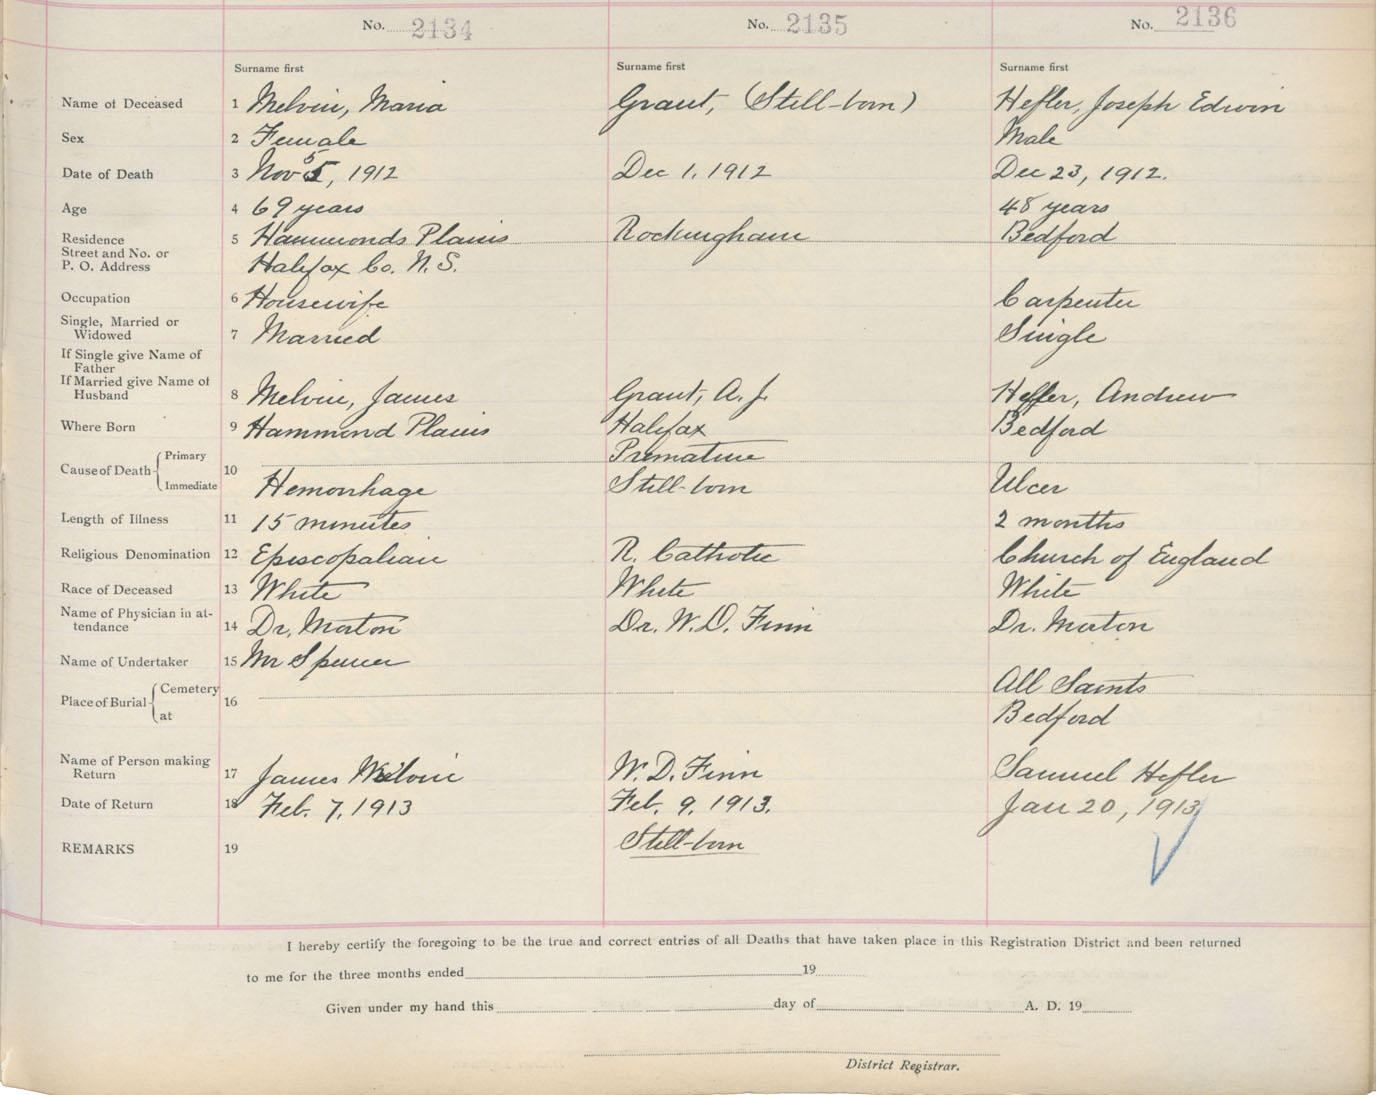 No. 2134 No. 2135 No. 2136
Surname first Surname first Surname first
Name of Deceased 1 Melvin, Maria Grant, (Still-born) Hefler, Joseph Edwin
Sex 2 Female Male
Date of Death 3 Nov 5, 1912 Dec 1, 1912 Dec 23, 1912.
Age 4 69 years 48 years
Residence 5 Hammonds Plains Rockingham Bedford
Street and No. or
P. O. Address Halifax Co. N. S.
Occupation 6 Housewife Carpenter
Single, Married or
Widowed 7 Married Single
If Single give Name of
Father
If Married give Name of
Husband 8 Melvin, James Grant, A. J. Hefler, Andrew
Where Born 9 Hammond Plains Halifax Bedford
Cause of Death Primary 10 Premature
Immediate Hemorrhage Still-born Ulcer
Length of Illness 11 15 minutes 2 months
Religious Denomination 12 Episcopalian R. Catholic Church of England
Race of Deceased 13 White White White
Name of Physician in at-
tendance 14 Dr. Morton Dr. W. D. Finn Dr. Morton
Name of Undertaker 15 Mr Spencer
Place of Burial Cemetery 16 All Saints
at Bedford
Name of Person making
Return 17 James Melvin W. D. Finn Samuel Hefler
Date of Return 18 Feb. 7, 1913 Feb. 9, 1913. Jan 20, 1913
REMARKS 19 Still-born
I hereby certify the foregoing to be the true and correct entries of all Deaths that have taken place in this Registration District and been returned
to me for the three months ended 19
Given under my hand this day of A. D. 19
District Registrar.